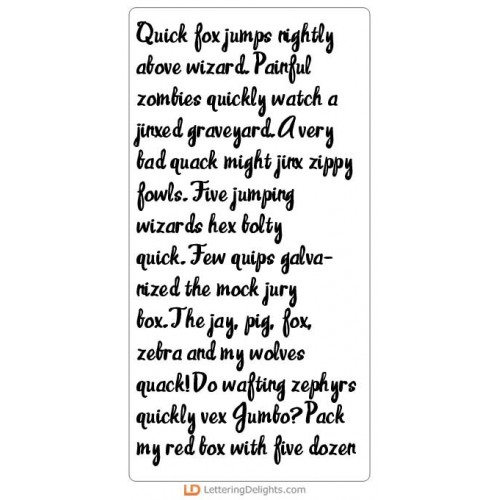 Quick fox jumps nightly
above wizard. Painful
zombies quickly watch a
jinxed graveyard. A very
bad quack might jinx zippy
fowls. Five jumping
wizards hex bolty
quick. Few quips galva-
nized the mock jury
box. The jay, pig, fox,
zebra and my wolves
quack! Do wafting zephyrs
quickly vex Jumbo? Pack
my red box with five dozen
LD LetteringDelights.com